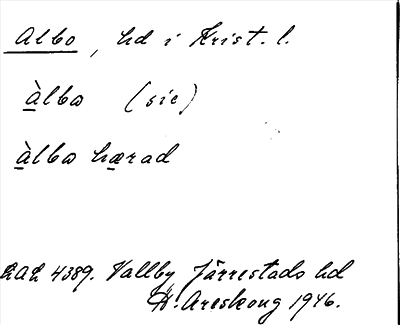 Albo, hd i Krist. l.
àlbo (sic)
àlbo hærad
LAL 4389. Vallby Järrestads hd
H. Areskoug 1946.